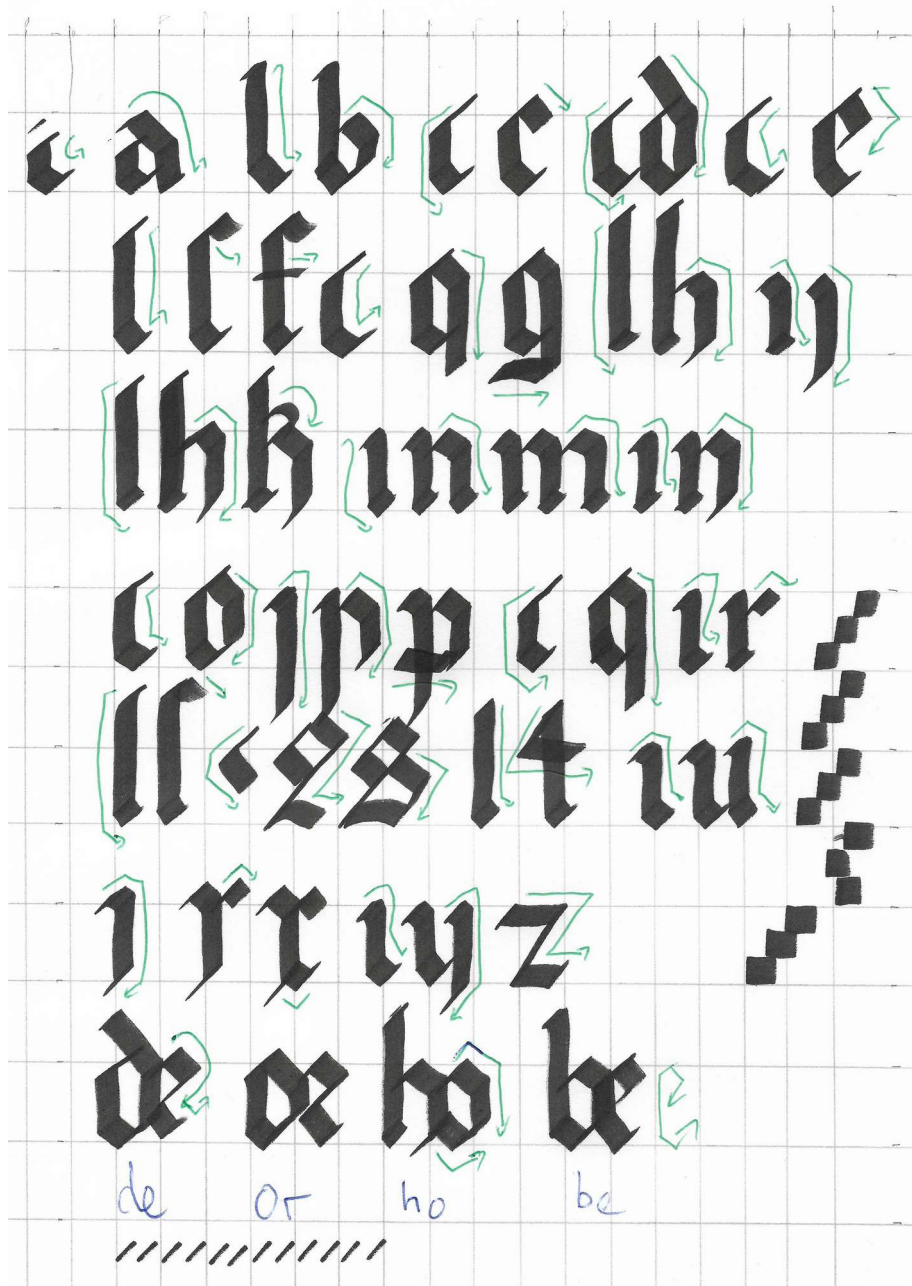 c a l b c c c d c e
l ſ f c q g l h ı y
l h k ı n m ı n
c o ȷ p p c q ı r
l ſ 2 s l t ı u
ı r x ı y z
de or ho be
de or ho be